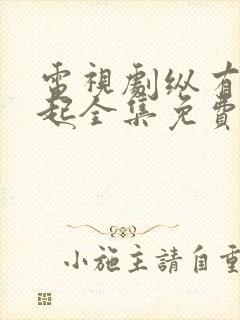 電視劇纵有
起全集免費
小施主請自重